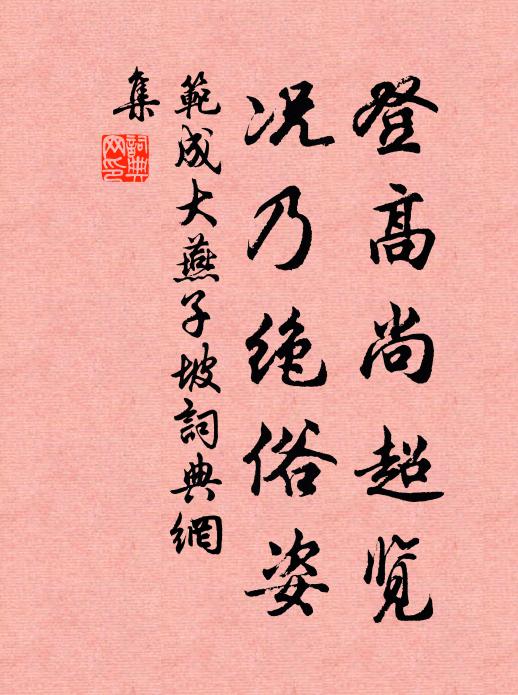 登高尚超览
况乃绝俗姿
範成大燕子坡詞典網
集
詞典
网印